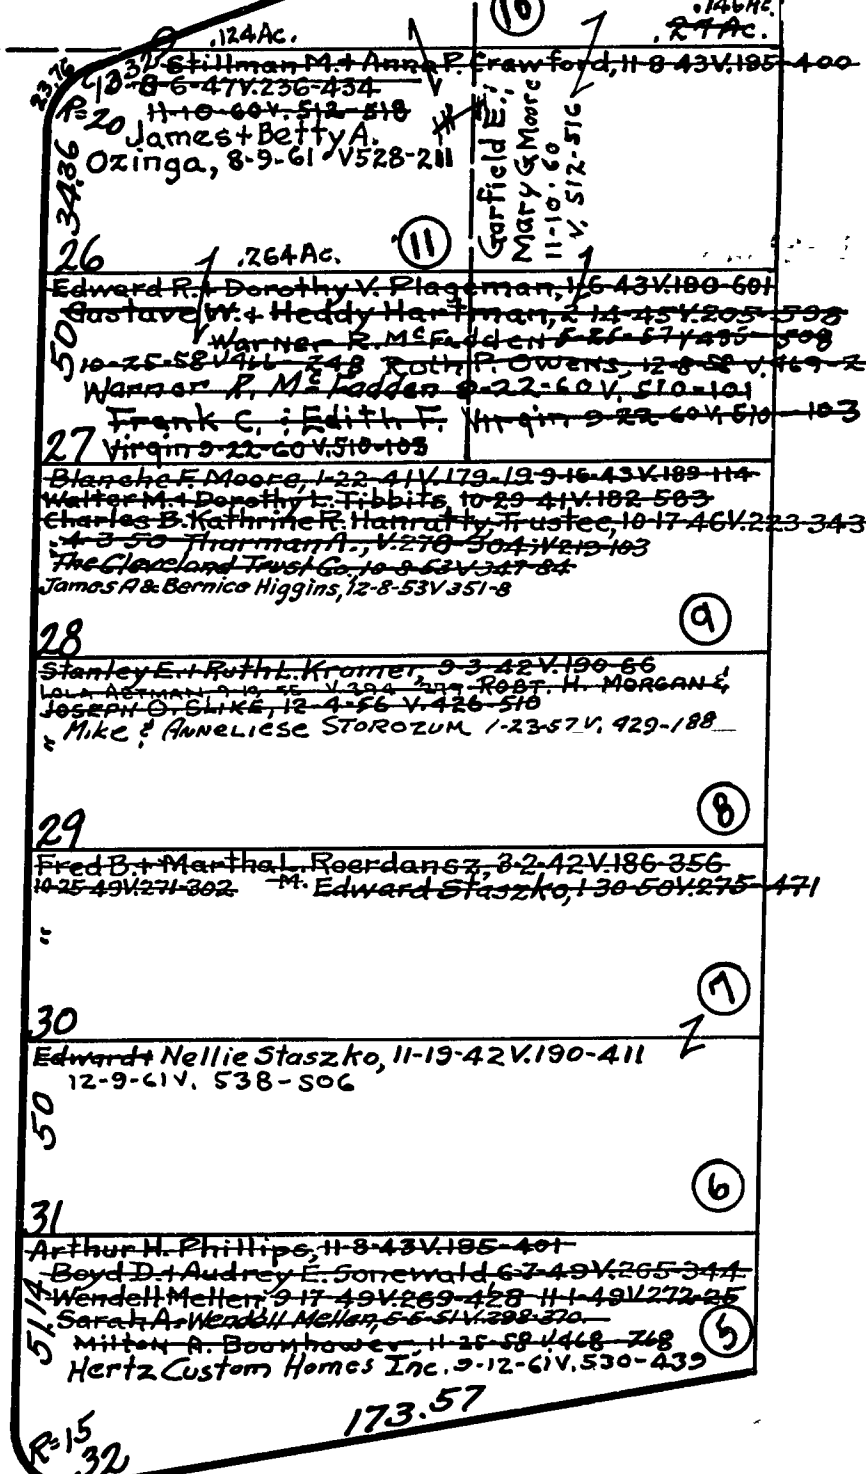 10
.146Ac.
.124Ac.
.27Ac.
23.76
13.32
Stillman M. + Anna P. Crawford, 11-8-43V.185-400
8-6-47V.236-434
R=20
11-10-60V. 512-518
James + Betty A.
Ozinga, 8-9-61 V528-211
Garfield E.;
Mary G Moore
11-10-60
V. 512-516
34.36
26
.264Ac.
11
Edward R. + Dorothy V. Plageman, 1-6-43V.180-601
Gustave W. + Heddy Hartman, 2-14-45V.205-598
Warner R. McFadden 5-26-57V435-508
50
10-25-58V466-248 Ruth P. Owens, 12-8-58 V.469-2
Warner R. McFadden 9-22-60V. 510-101
Frank C. ; Edith F. Virgin 9-22-60V.510-103
27 Virgin 9-22-60V.510-103
Blanche F. Moore, 1-22-41V.179-19 9-16-43V.189-114
Walter M. + Dorothy L. Tibbits, 10-29-41V.182-583
Charles B. Kathrine R. Hanratty, Trustee, 10-17-46V.223-343
" 4-3-50 Tharman A., V.278-504; V219-103
The Cleveland Trust Co. 10-8-53V347-84
James A & Bernice Higgins, 12-8-53V351-8
9
28
Stanley E. + Ruth L. Kramer, 9-3-42V.190-66
LOLA ALTMAN, 9-19-55 V.394-279 ROBT. H. MORGAN &
JOSEPH O. SLIKE, 12-4-56 V.426-510
" Mike & ANNELIESE STOROZUM 1-23-57 V. 429-188
8
29
Fred B. + Martha L. Roerdansz, 3-2-42V.186-356
10-25-49V.271-302 M. Edward Staszko, 1-30-50V.275-471
"
7
30
Edward + Nellie Staszko, 11-19-42V.190-411
12-9-61V. 538-506
50
6
31
Arthur H. Phillips, 11-8-43V.185-401
Boyd D. + Audrey E. Sonewald 6-7-49V.265-344
Wendell Mellen 9-17-49V.269-428 11-1-49V272-25
Sarah A. Wendell Mellen, 6-6-51V.298-370
51.14
5
Milton A. Boomhower, 11-25-58V468-768
Hertz Custom Homes Inc. 9-12-61V.530-439
173.57
R=15
32